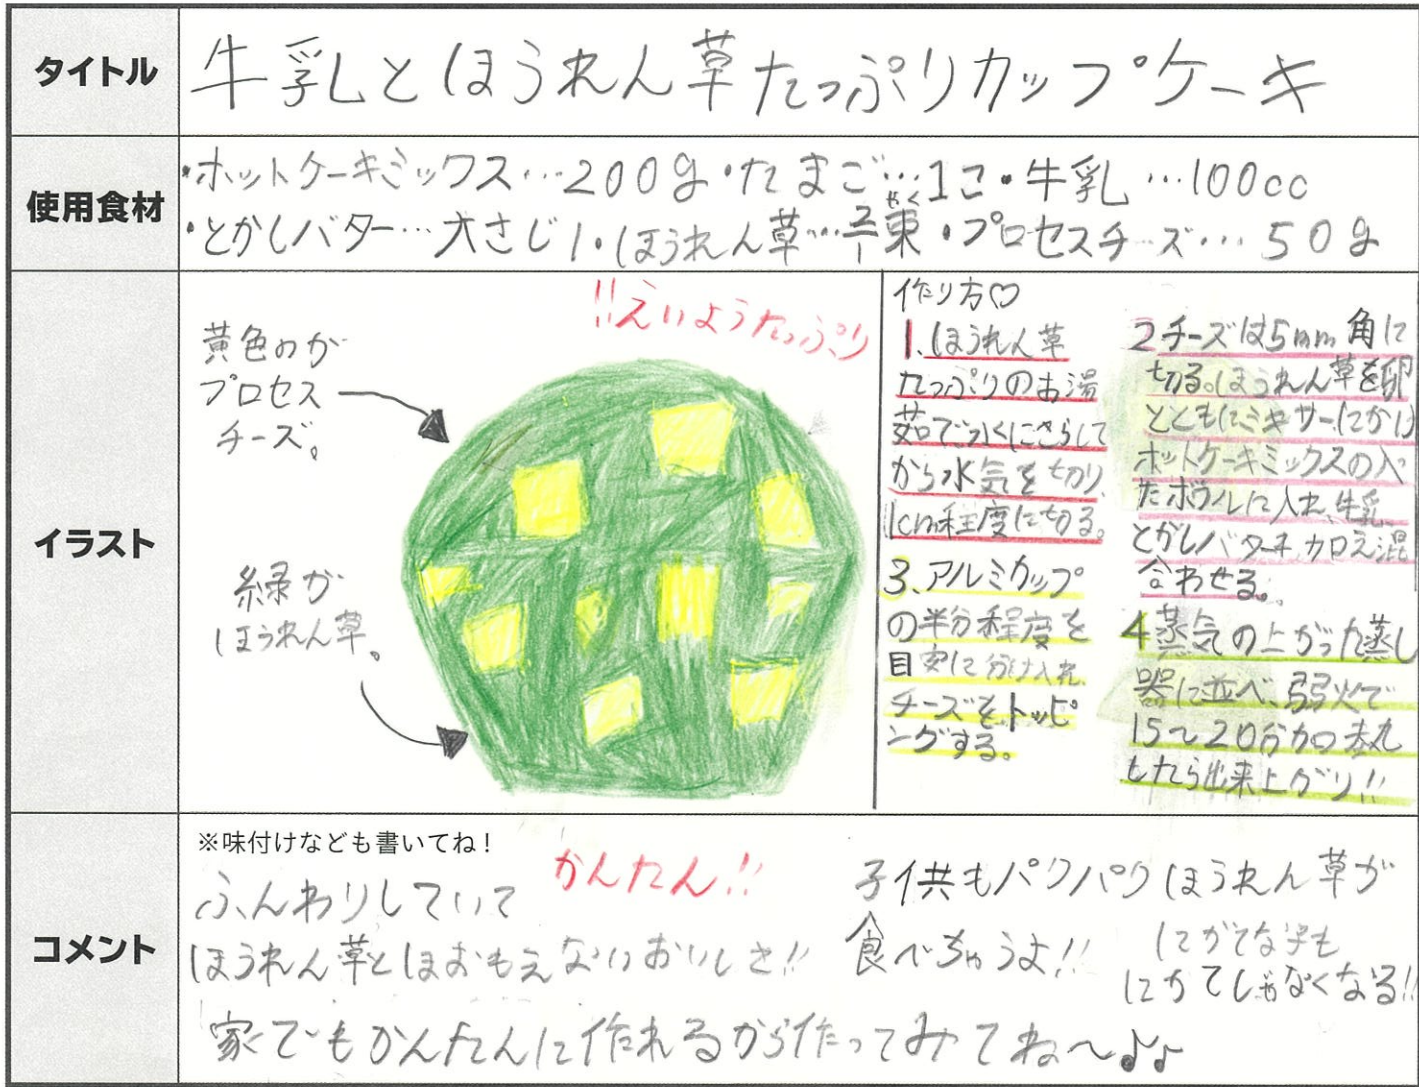 タイトル
牛乳とほうれん草たっぷりカップケーキ
使用食材
・ホットケーキミックス…200g・たまご…1こ・牛乳…100cc
・とかしバター…大さじ1・ほうれん草…1/2束・プロセスチーズ…50g
わく
イラスト
!!えいようたっぷり
黄色のが
プロセス
チーズ。
緑が
ほうれん草。
作り方♡
1.ほうれん草
たっぷりのお湯
茹で水にさらして
から水気を切り、
1cm程度に切る。
2チーズは5mm角に
切る。ほうれん草を卵
とともにミキサーにかけ
ホットケーキミックスの入っ
たボウルに入れ、牛乳、
とかしバターを加え混
合わせる。
3.アルミカップ
の半分程度を
目安に分け入れ、
チーズをトッピ
ングする。
4蒸気の上がった蒸し
器に並べ、弱火で
15〜20分加熱
したら出来上がり!!
コメント
※味付けなども書いてね!
かんたん!!
ふんわりしていて
ほうれん草とはおもえないおいしさ!!
子供もパクパクほうれん草が
食べちゃうよ!!
にがてな子も
にがてじゃなくなる!!
家でもかんたんに作れるから作ってみてね〜♪♪